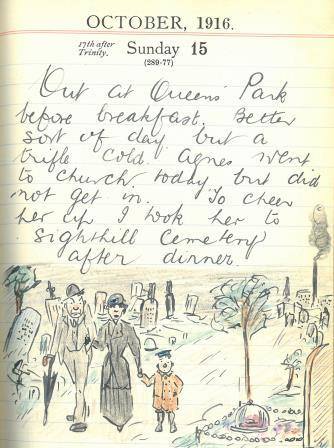 OCTOBER, 1916.
17th after Trinity.
Sunday 15
(289-77)
Out at Queens Park
before breakfast. Better
sort of day but a
trifle cold. Agnes went
to church today but did
not get in. To cheer
her up I took her to
Sighthill Cemetery
after dinner